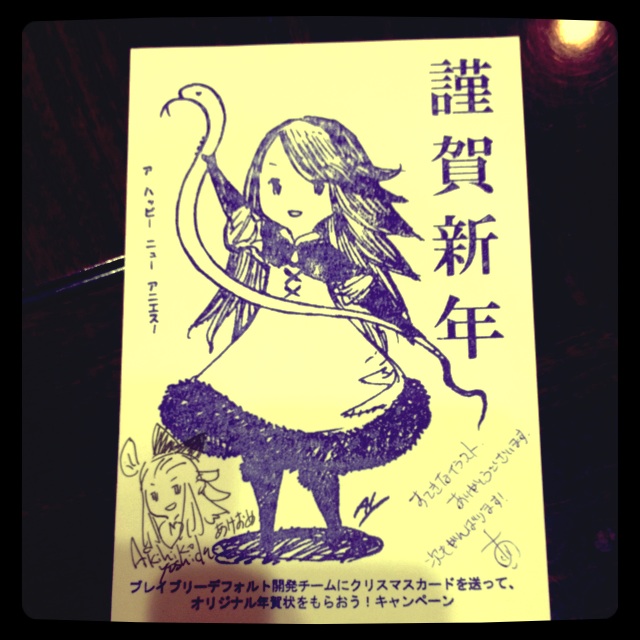 謹賀新年
ア ハッピー ニュー アニエスー
すてきなイラスト
ありがとうございます。
次もがんばります!
あけおめ
Akihiko
Yoshida
ブレイブリーデフォルト開発チームにクリスマスカードを送って、
オリジナル年賀状をもらおう!キャンペーン